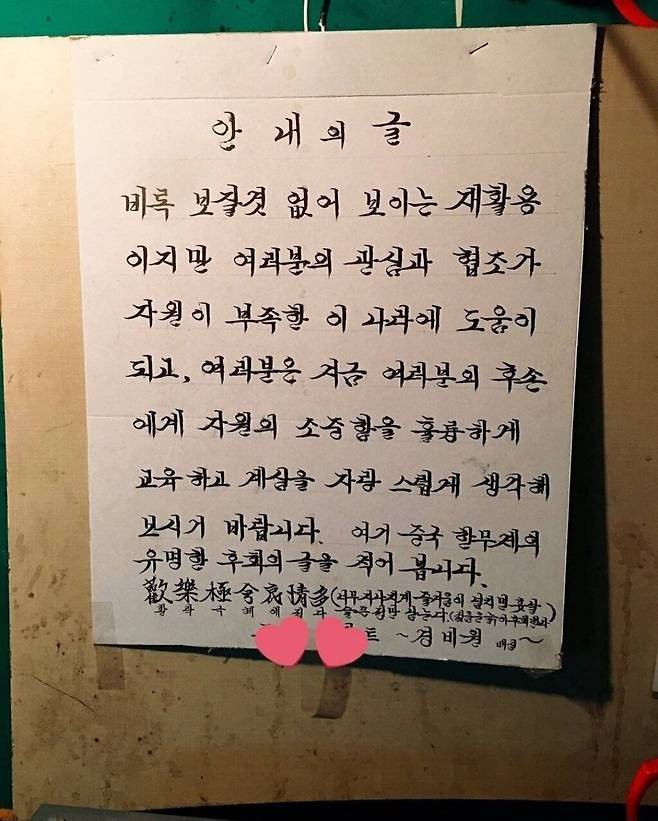 안 내 의 글
비록 보잘것 없어 보이는 재활용
이지만 여러분의 관심과 협조가
자원이 부족한 이 나라에 도움이
되고, 여러분은 지금 여러분의 후손
에게 자원의 소중함을 훌륭하게
교육하고 계심을 자랑 스럽게 생각해
보시기 바랍니다. 여기 중국 한무제의
유명한 후회의 글을 적어 봅니다.
歡樂極兮哀情多(너무 사치게 즐거움이 넘치면 훗날
환 락 극 혜 애 정 다 슬픈 정만 남는다.(젊음을
트 ~ 경비원 ~